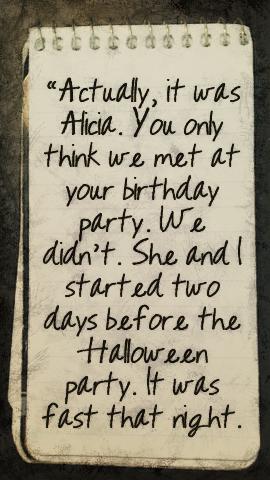 “Actually, it was
Alicia. You only
think we met at
your birthday
party. We
didn't. She and I
started two
days before the
Halloween
party. It was
fast that night.